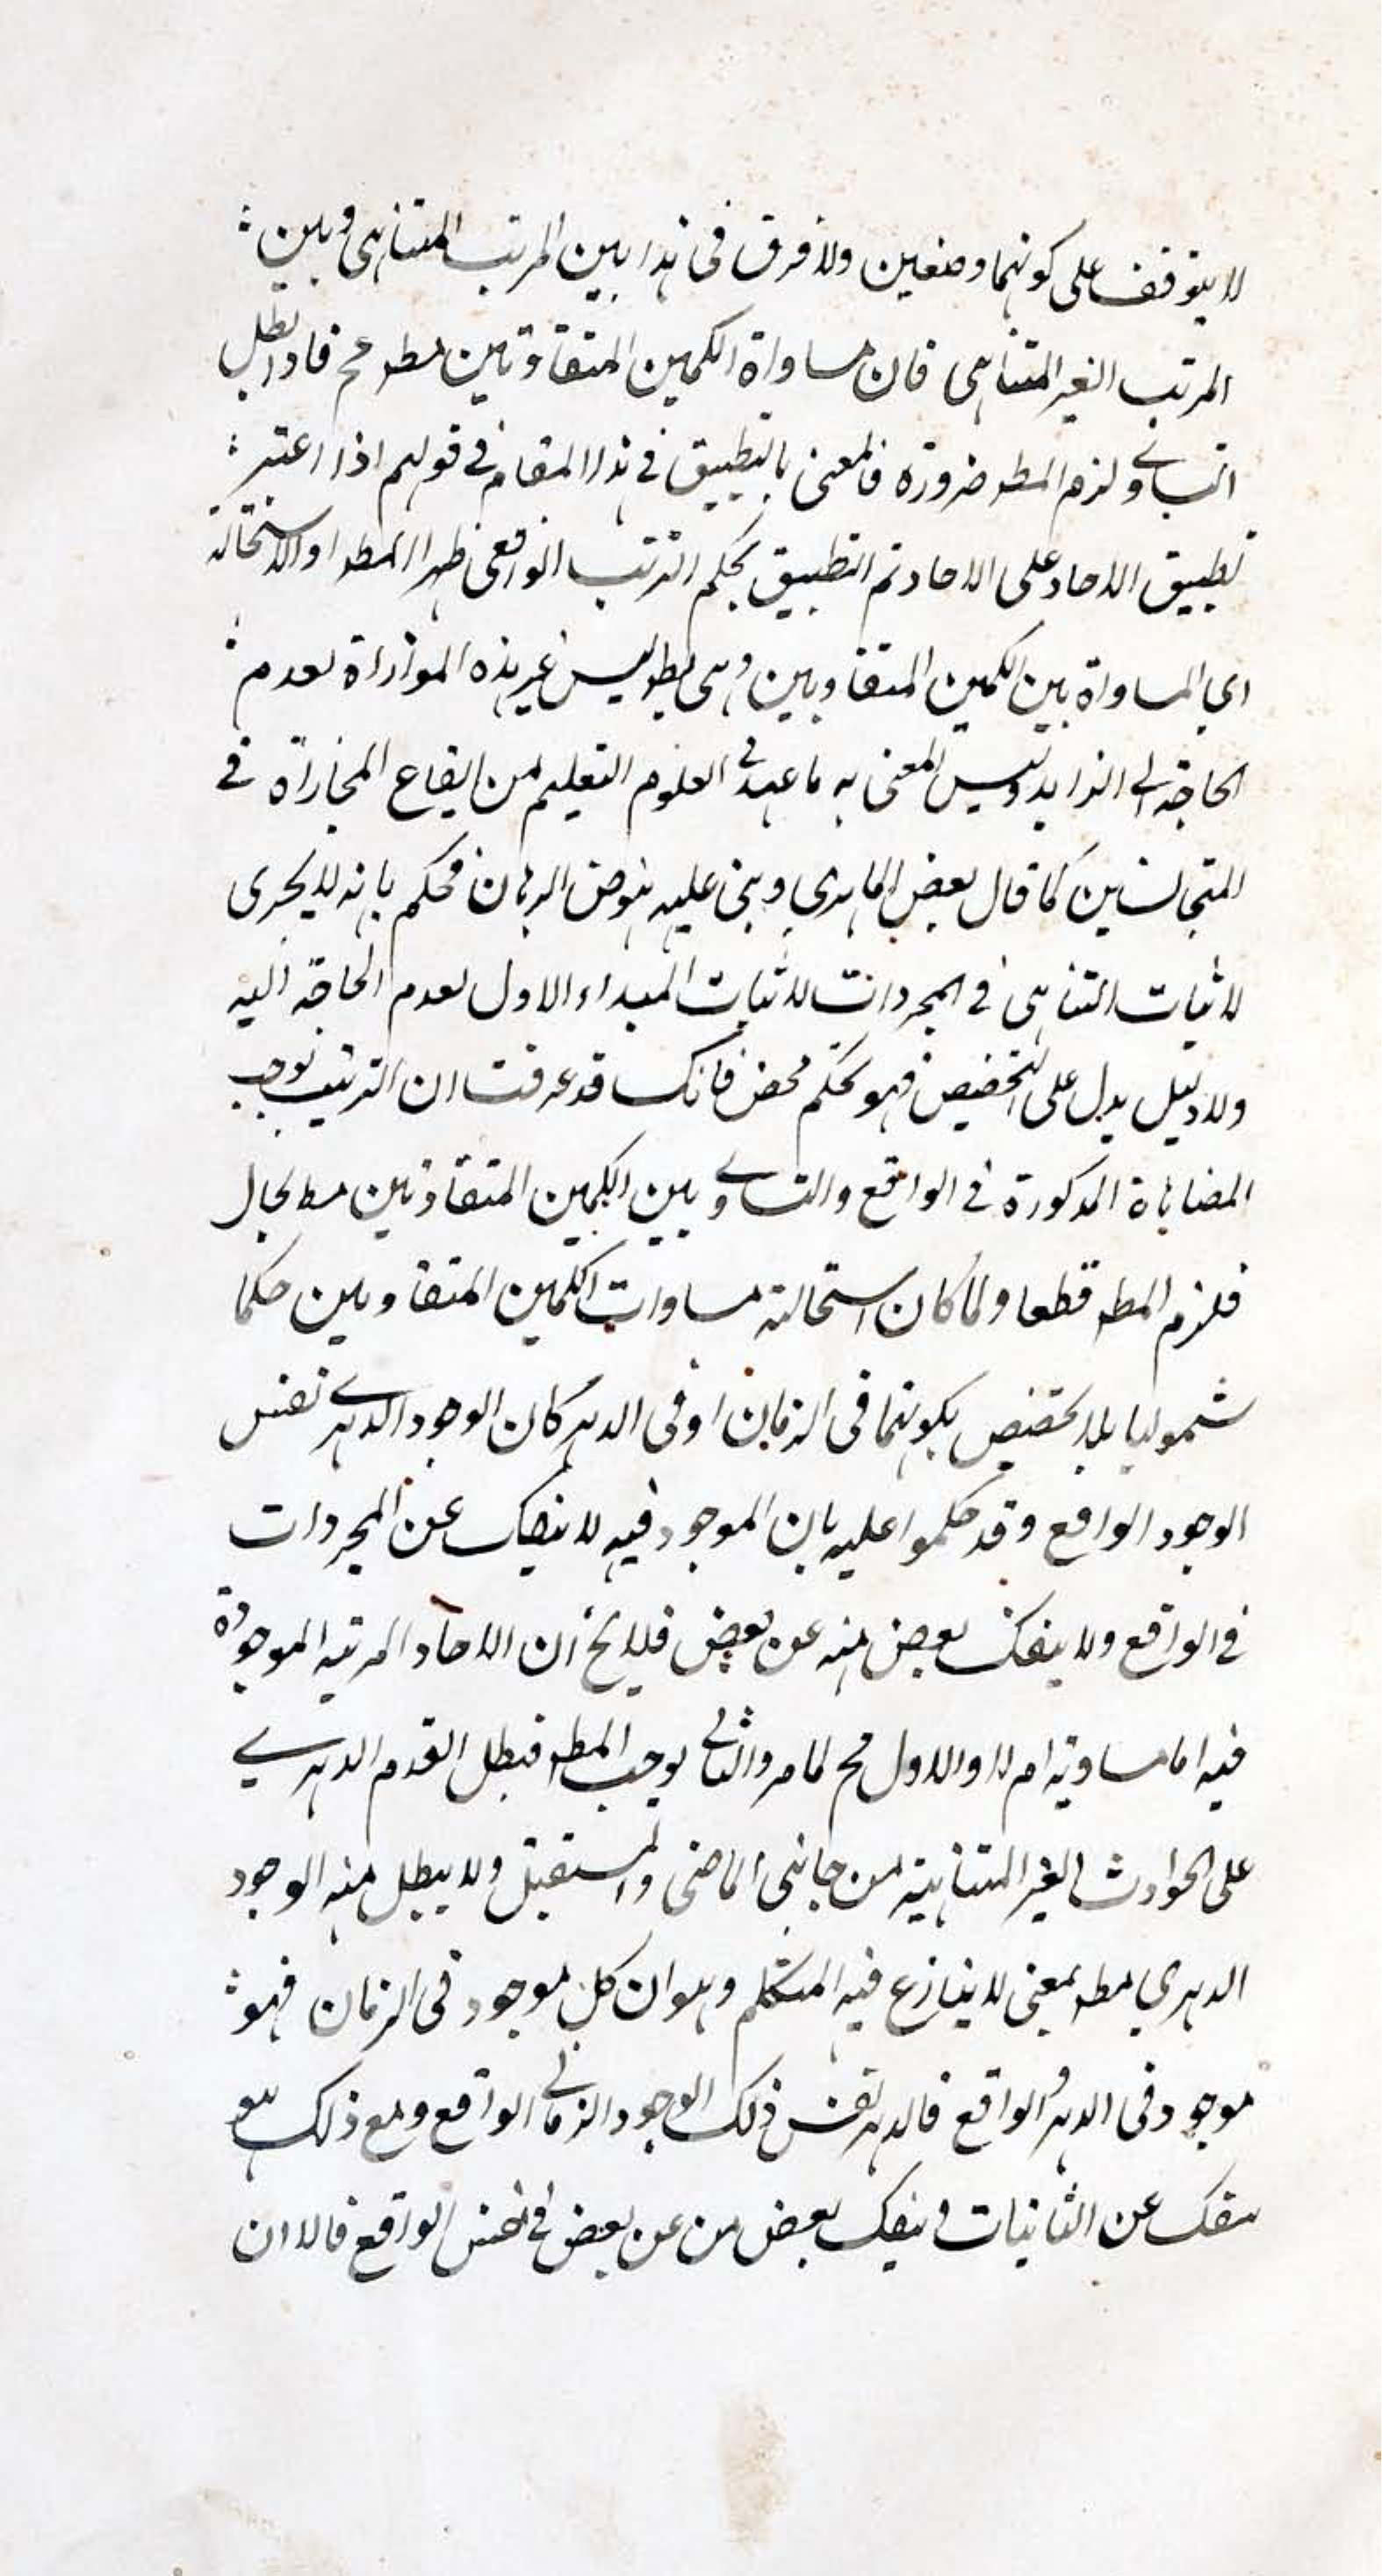 لا يتوقف على كونهما وضعين ولا فرق فى هذا بين المرتب المتناهى وبين
المرتب الغير المتناهى فان مساواة الكمين المتفاوتين مط مح فاذا بطل
التساوي لزم المط ضرورة فالمعنى بالتطبيق في هذا المقام في قولهم اذا اعتبر
تطبيق الاحاد على الاحاد تم التطبيق بحكم الترتب الواقعى ظهر المط او الاستحالة
اي المساواة بين الكمين المتفاوتين وهى مط ليس غير هذه الموازاة لعدم
الحاجة الى الزايد وليس المعنى به ما عهد فى العلوم التعليم من ايقاع المحازاة في
المتجانسين كما قال بعض وبنى عليه نهوض البرهان فحكم بانه لا يجرى
لاثبات التناهى في المجردات لاثبات المبداء الاول لعدم الحاجة اليه
ولا دليل يدل على التخصيص فهو تحكم محض فانك قد عرفت ان الترتيب توجب
المضاهاة المذكورة في الواقع والتساوي بين الكمين المتفاوتين مط محال
فلزم المط قطعا ولما كان استحالة مساوات الكمين المتفاوتين حكما
شموليا بلا تخصيص بكونهما فى الزمان او فى الدهر كان الوجود الدهرے نفس
الوجود الواقع وقد حكموا عليه بان الموجود فيه لا ينفك عن المجردات
في الواقع ولا ينفك بعض منه عن بعض فلا يخ ان الاحاد المرتبه الموجودة
فيه اما مساوية ام لا والاول مح لما مر والثانى يوجب المط فبطل القدم الدهرے
على الحوادث الغير المتناهية من جانبى الماضى والمستقبل ولا يبطل منه الوجود
الدهري مط بمعنى لا ينازع فيه المتكلم وهو ان كل موجود فى الزمان فهو
موجود فى الدهر والواقع فالدهر نفس ذلك الوجود الزمانى الواقع ومع ذلك هو
ينفك عن الثانيات وينفك بعض من عن بعض في نفس الواقع فالا ان